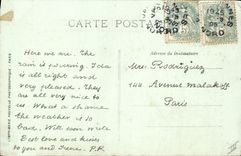 CARTE POSTALE
Here we are. The
rain is pouring. Ida
is all right and
very pleased. They
are all very nice to
us. What a shame
the weather is so
bad. Will soon write
Best love and kisses
to you and Irene. P.R.
Adresse du Destinataire
Mrs. Rodriguez
142 Avenue Malakoff
Paris